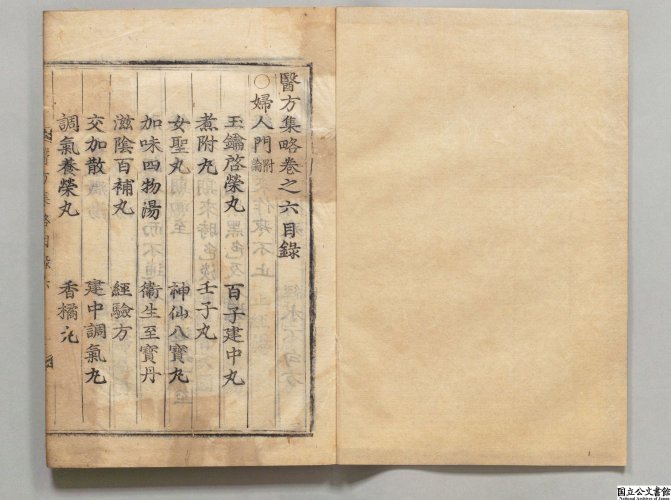 醫方集略卷之六目錄
○婦人門附論
玉鑰啓榮丸 百子建中丸
煮附丸 壬子丸
女聖丸 神仙八寶丸
加味四物湯 衛生至寶丹
滋陰百補丸 經驗方
交加散 建中調氣丸
調氣養榮丸 香橘丸
醫方集略目錄六
国立公文書館
National Archives of Japan